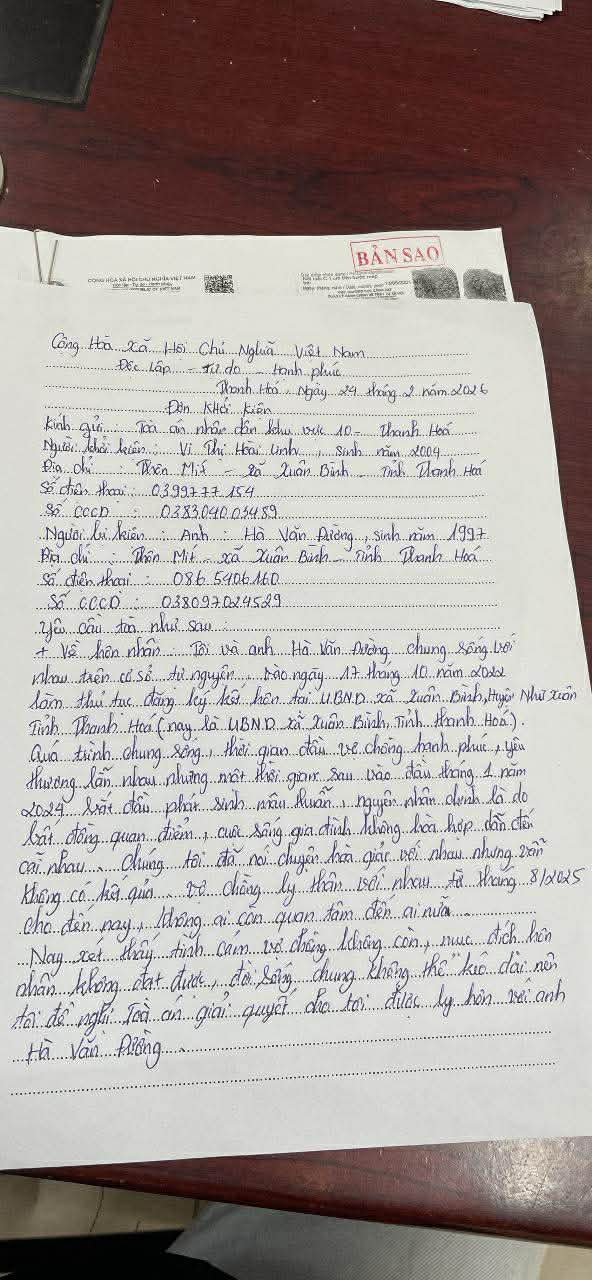 BẢN SAO
CỘNG HÒA XÃ HỘI CHỦ NGHĨA VIỆT NAM
Độc lập - Tự do - Hạnh phúc
Cộng Hòa Xã Hội Chủ Nghĩa Việt Nam
Độc lập - Tự do - Hạnh phúc
Thanh Hoá, Ngày 24 tháng 2 năm 2026
Đơn Khởi Kiện
Kính gửi: Toà án nhân dân khu vực 10 - Thanh Hoá
Người khởi kiện: Vi Thị Hoài Linh, Sinh năm 2004
Địa chỉ: Thôn Mít - xã Xuân Bình - Tỉnh Thanh Hoá
Số điện thoại: 0399777154
Số CCCD: 038304003489
Người bị kiện: Anh: Hà Văn Đường, sinh năm 1997
Địa chỉ: Thôn Mít - xã Xuân Bình - Tỉnh Thanh Hoá
Số điện thoại: 086 5406160
Số CCCD: 038097024529
Yêu cầu toà như sau:
+ Về hôn nhân: Tôi và anh Hà Văn Đường chung sống với
nhau trên cơ sở tự nguyện, vào ngày 17 tháng 10 năm 2022
làm thủ tục đăng ký kết hôn tại UBND xã Xuân Bình, Huyện Như Xuân
Tỉnh Thanh Hoá (nay là UBND xã Xuân Bình, Tỉnh thanh Hoá).
Quá trình chung sống, thời gian đầu vợ chồng hạnh phúc, yêu
thương lẫn nhau nhưng một thời gian sau vào đầu tháng 1 năm
2024 bắt đầu phát sinh mâu thuẫn, nguyên nhân chính là do
bất đồng quan điểm, cuộc sống gia đình không hòa hợp dẫn đến
cãi nhau. Chúng tôi đã nói chuyện hòa giải với nhau nhưng vẫn
không có kết quả. Vợ chồng ly thân với nhau từ tháng 8/2025
cho đến nay, không ai còn quan tâm đến ai nữa.
Nay xét thấy tình cảm vợ chồng không còn, mục đích hôn
nhân không đạt được, đời sống chung không thể kéo dài nên
tôi đề nghị Toà án giải quyết cho tôi được ly hôn với anh
Hà Văn Đường.